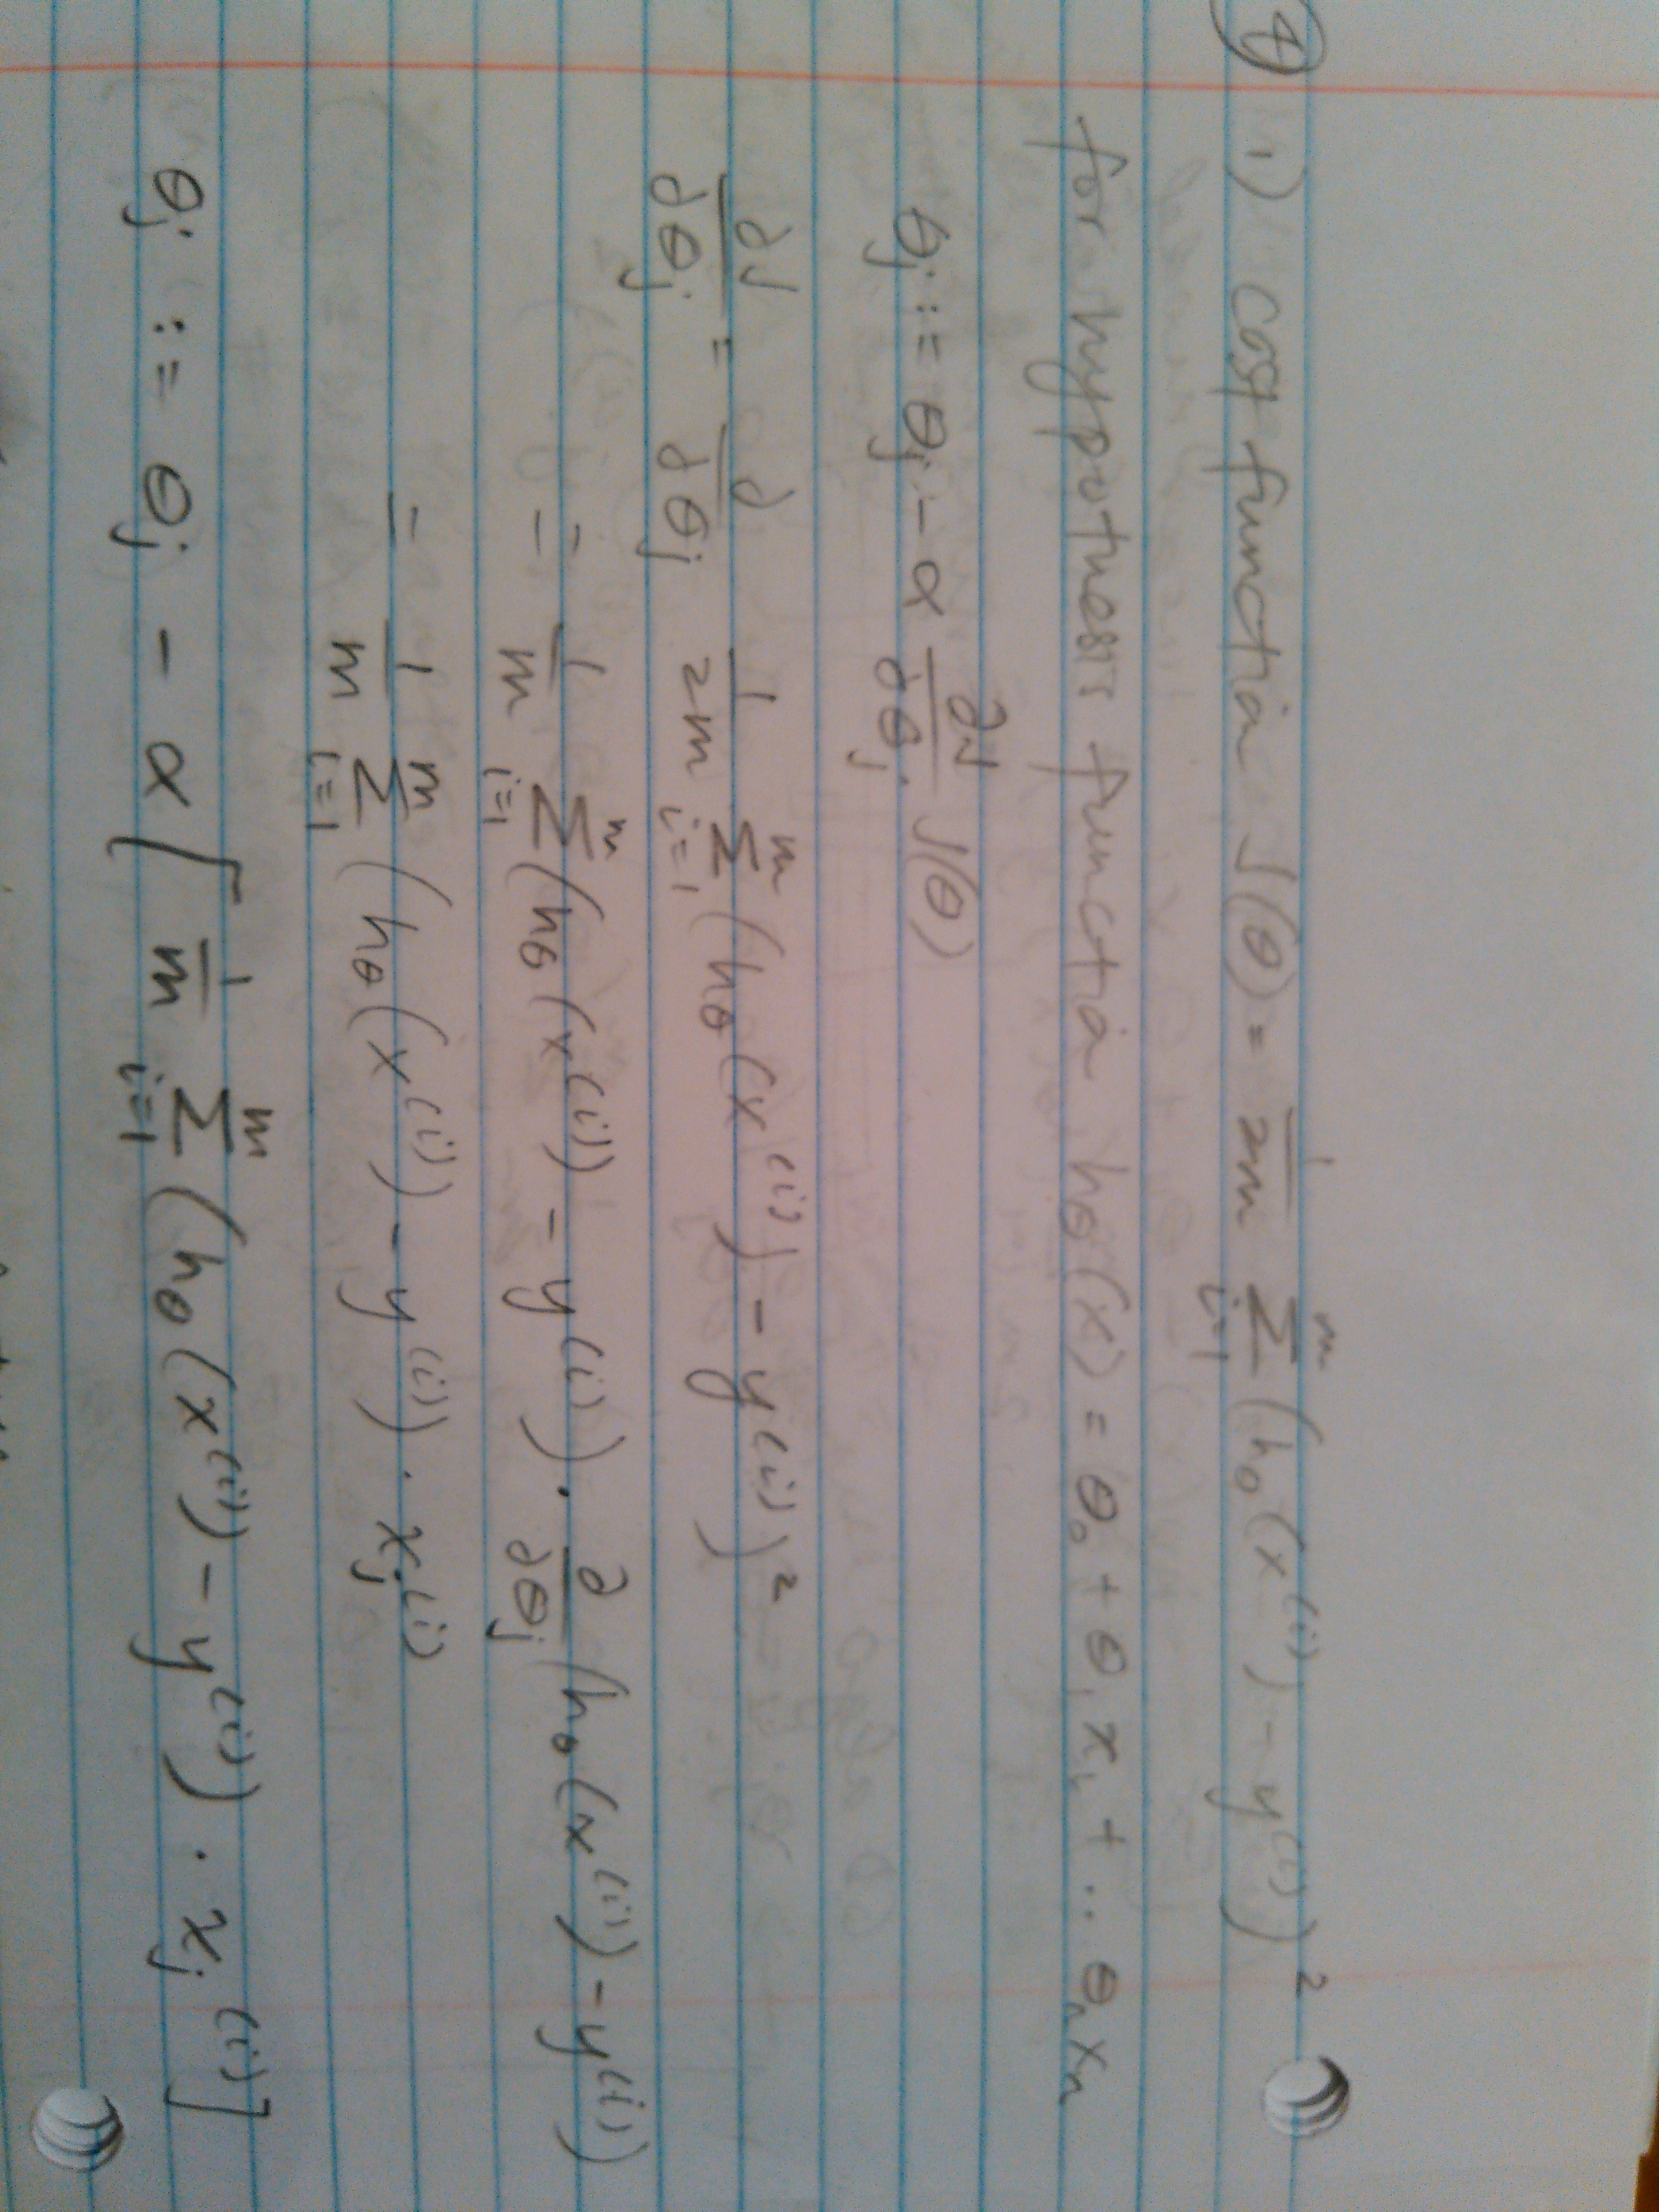 ④ 1) cost function J(θ) = 1/2m Σ_{i=1}^{m} (hθ(x^(i)) - y^(i))²
for hypothesis function hθ(x) = θ₀ + θ₁x₁ + ... θₙxₙ
θj := θj - α ∂/∂θj J(θ)
∂J/∂θj = ∂/∂θj 1/2m Σ_{i=1}^{m} (hθ(x^(i)) - y^(i))²
= 1/m Σ_{i=1}^{m} (hθ(x^(i)) - y^(i)) · ∂/∂θj (hθ(x^(i)) - y^(i))
= 1/m Σ_{i=1}^{m} (hθ(x^(i)) - y^(i)) · xj^(i)
θj := θj - α [ 1/m Σ_{i=1}^{m} (hθ(x^(i)) - y^(i)) · xj^(i) ]